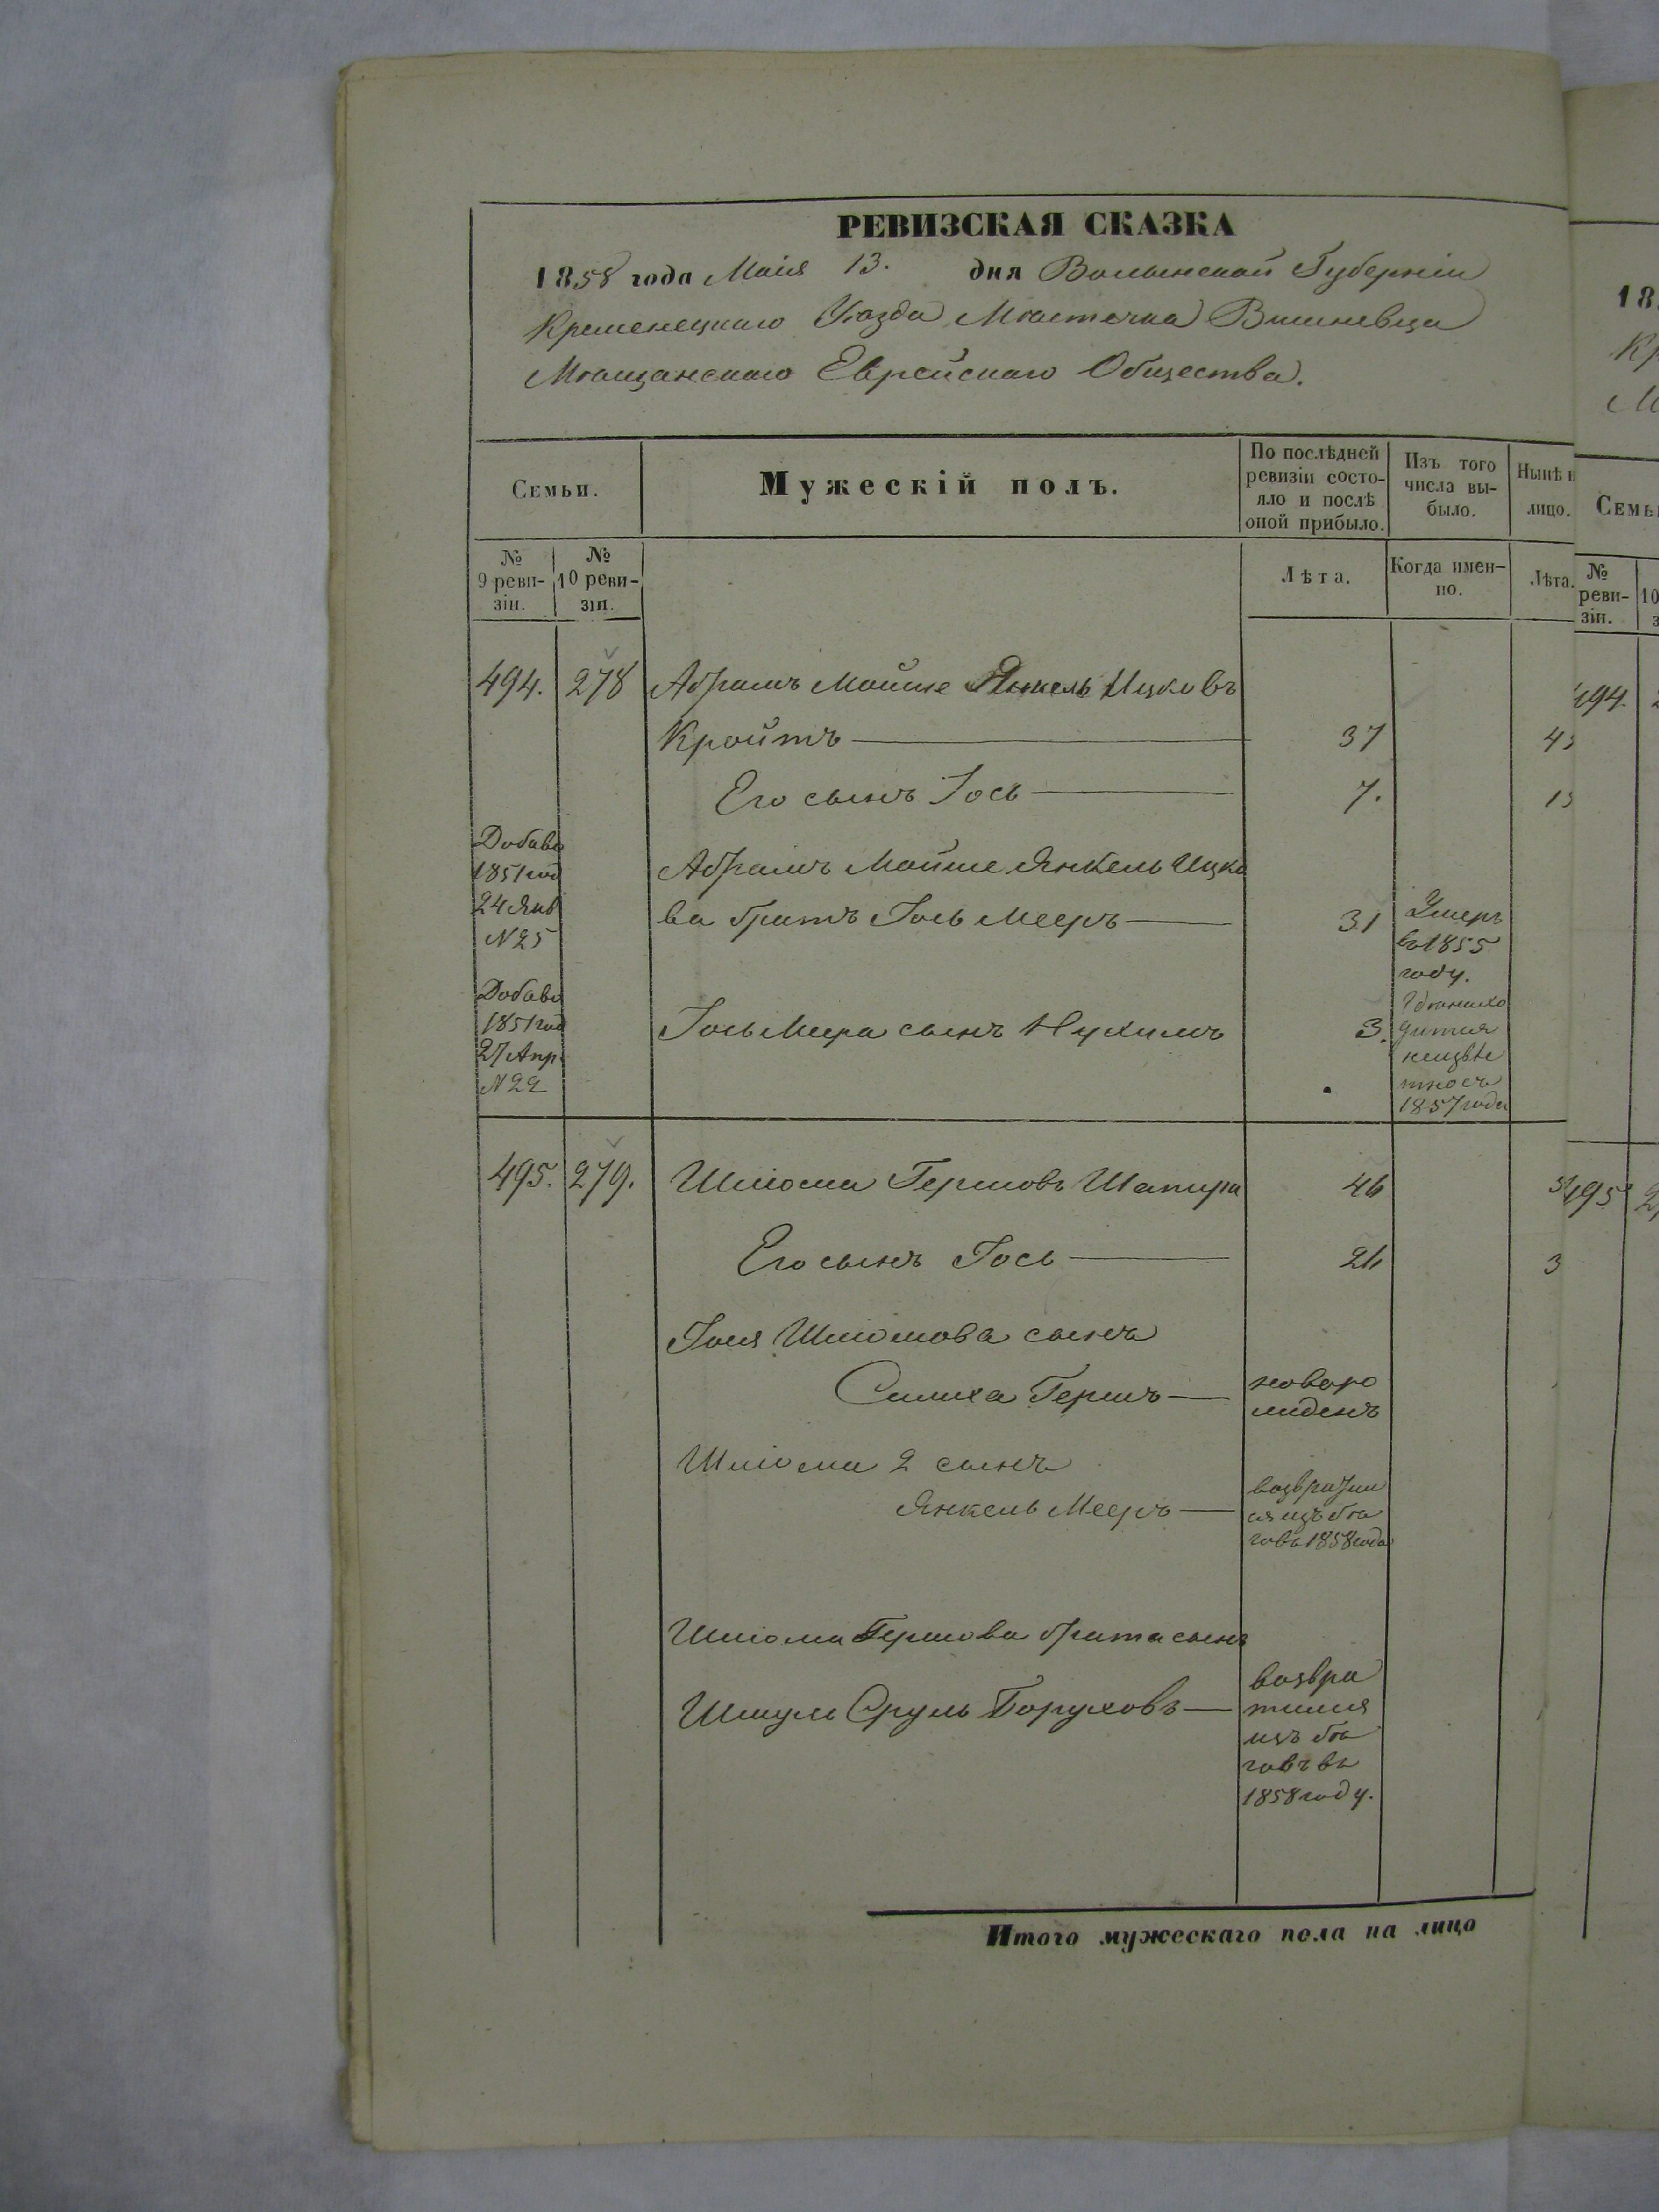 РЕВИЗСКАЯ СКАЗКА
1858 года Маія 13. дня Волынской Губерніи
Кременецкаго Уѣзда Мѣстечка Вишневца
Мѣщанскаго Еврейскаго Общества.
Семьи.
Мужескій полъ.
По послѣдней
ревизіи состо-
яло и послѣ
оной прибыло.
Изъ того
числа вы-
было.
Нынѣ н
лицо.
№
9 реви-
зіи.
№
10 реви-
зіи.
Лѣта.
Когда имен-
но.
Лѣта.
494. 278 Абрамъ Мойше Янкель Ицковъ
Кройтъ 37
Его сынъ Іось 7.
Добавоч
1851 год
24 Янв
N 25
Абрамъ Мойше Янкель Ицко
ва братъ Іось Мееръ 31
Умеръ
въ 1855
году.
Добавоч
1851 год
27 Апр
N 22
Іось Меера сынъ Нухимъ 3.
Где находи
дится
неизвѣ
тно съ
1857 года
495. 279. Шлёма Гершовъ Шапира 46
Его сынъ Іось 26
Іося Шлёмова сынъ
Симха Гершъ
новоро
жденъ
Шлёмы 2 сынъ
Янкель Мееръ
возвратил
ся изъ бѣ
говъ 1858 года
Шлёмы Гершова брата сынъ
Шмуль Сруль Боруховъ
возвра
тился
изъ бѣ
говъ въ
1858 году.
Итого мужескаго пола на лицо
18
Кр
М
Семь
№
реви-
зіи.
10
494.
495